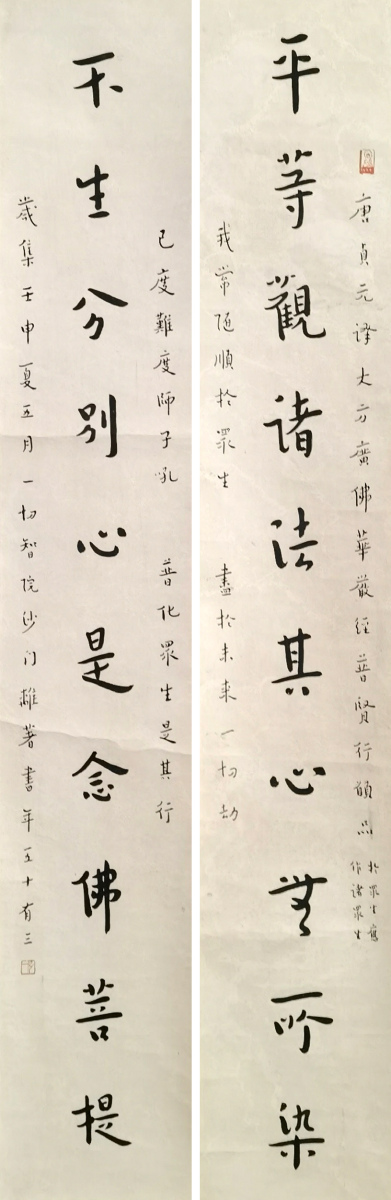 唐貞元译大方廣佛華嚴經普賢行願品
於眾生
作诸眾生
平等觀诸法其心無所染
我常随順於眾生 盡於未来一切劫
已度難度師子吼 普化眾生是其行
不生分别心是念佛菩提
歲集壬申夏五月一切智院沙门著書年五十有三